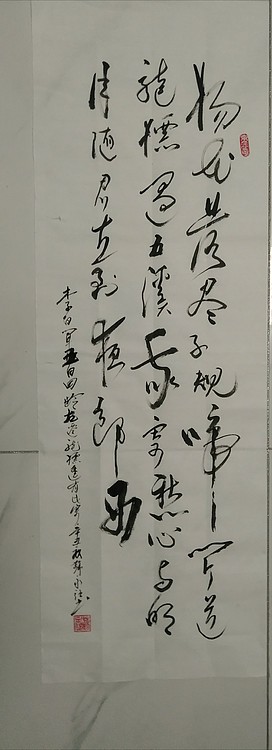 杨花落尽子规啼闻道
龍標过五溪我寄愁心与明
月随君直到夜郎西
李白闻王昌龄左迁龍標遥有此寄辛丑秋